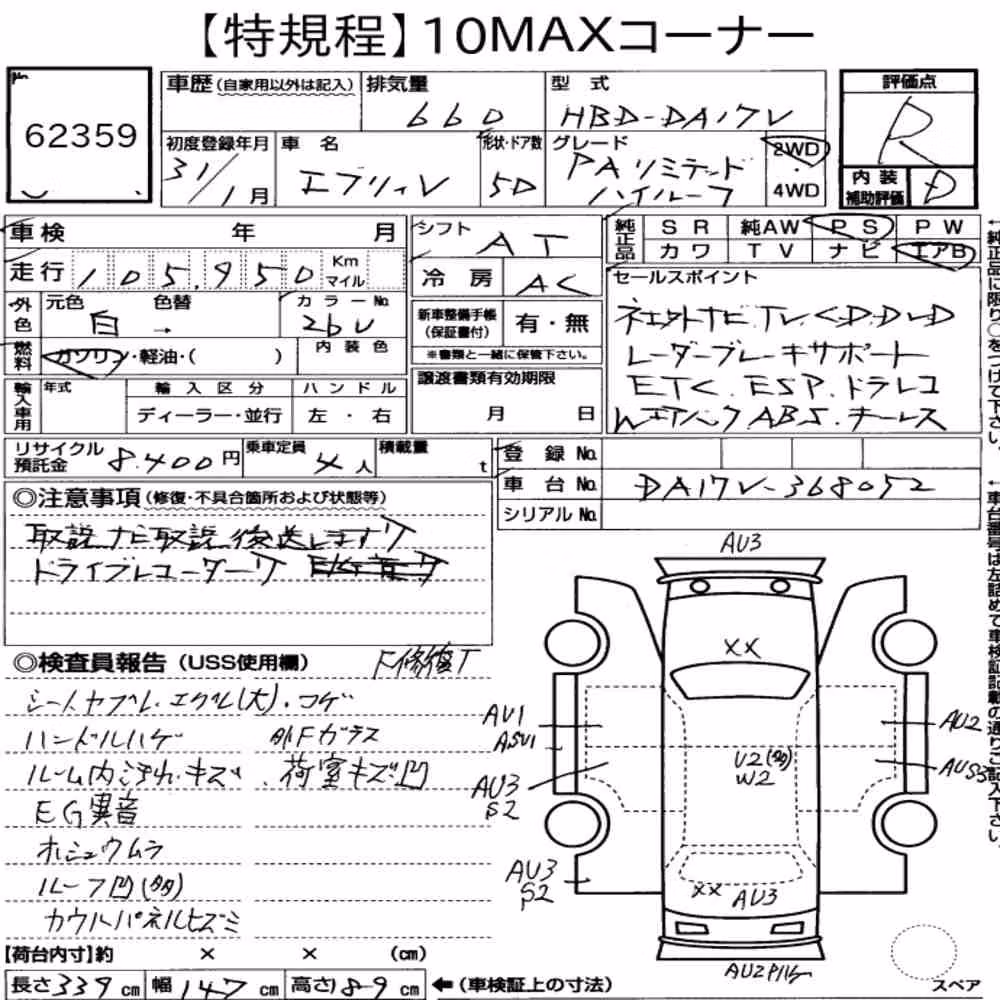 【特規程】10MAXコーナー
No 62359
車歴(自家用以外は記入) 排気量 660 型式 HBD-DA17V 評価点 R
初度登録年月 31/1月 車名 エブリィV 形状・ドア数 5D グレード PAリミテッド ハイルーフ 2WD・4WD 内装補助評価 D
車検 年 月 シフト AT 純正品 SR 純AW PS PW
カワ TV ナビ エアB
走行 105,950 Km マイル 冷房 AC
セールスポイント
外色 元色 白 → 色替 カラーNo. 26U
新車整備手帳(保証書付) 有・無
※書類と一緒に保管下さい。
燃料 ガソリン・軽油・( ) 内装色
ナビTV.CD.DVD
レーダーブレーキサポート
ETC.ESP.ドラレコ
WエアバックABS.キーレス
輸入車用 年式 輸入区分 ハンドル
ディーラー・並行 左・右
譲渡書類有効期限
月 日
リサイクル預託金 8.400円 乗車定員 4人 積載量 t
登録No.
車台No. DA17V-368052
シリアルNo.
◎注意事項(修復・不具合箇所および状態等)
取説 ナビ取説 後送します
ドライブレコーダー
◎検査員報告(USS使用欄)
下修復
シートヤブレ.エグレ(大).コゲ
ハンドルハゲ Fガラス
ルーム内汚れ.キズ 荷室キズ凹
EG異音
ホシュウムラ
ルーフ凹(多)
カウルパネルヒズミ
AU3
XX
AU1
ASU1
AU3
S2
AU3
S2
U2(多)
W2
AU2
AUS3
XX AU3
AU2
【荷台内寸】約 × × (cm)
長さ339cm 幅147cm 高さ189cm ←(車検証上の寸法) スペア
←純正品に限り○をつけて下さい。
←車台番号は左詰めで車検証記載の通りご記入下さい。